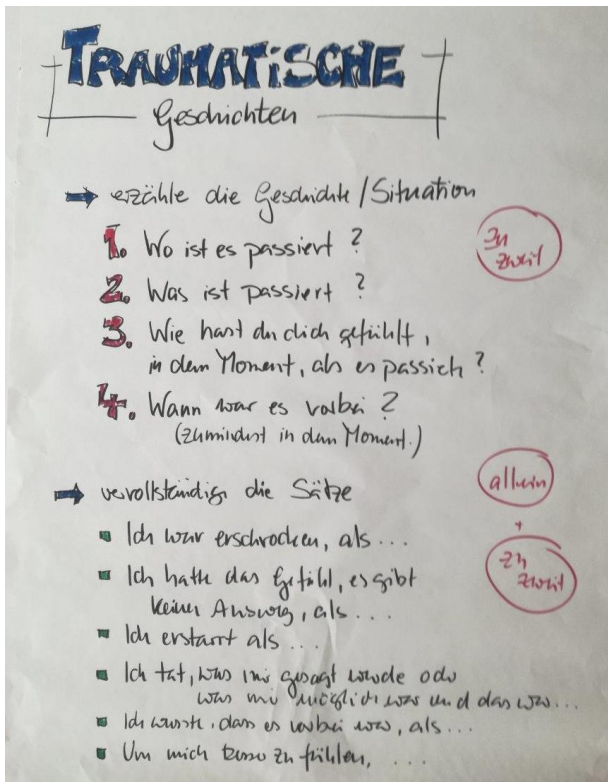 TRAUMATiSCHE
Geschichten
➡ erzähle die Geschichte / Situation
1. Wo ist es passiert?
zu zweit
2. Was ist passiert?
3. Wie hast du dich gefühlt,
in dem Moment, als es passiert?
4. Wann war es vorbei?
(zumindest in dem Moment.)
➡ vervollständige die Sätze
allein
+
zu zweit
▪ Ich war erschrocken, als ...
▪ Ich hatte das Gefühl, es gibt
keinen Ausweg, als ...
▪ Ich erstarrt als ...
▪ Ich tat, was mir gesagt wurde oder
was mir möglich war und das war...
▪ Ich wusste, dass es vorbei war, als...
▪ Um mich besser zu fühlen, ...